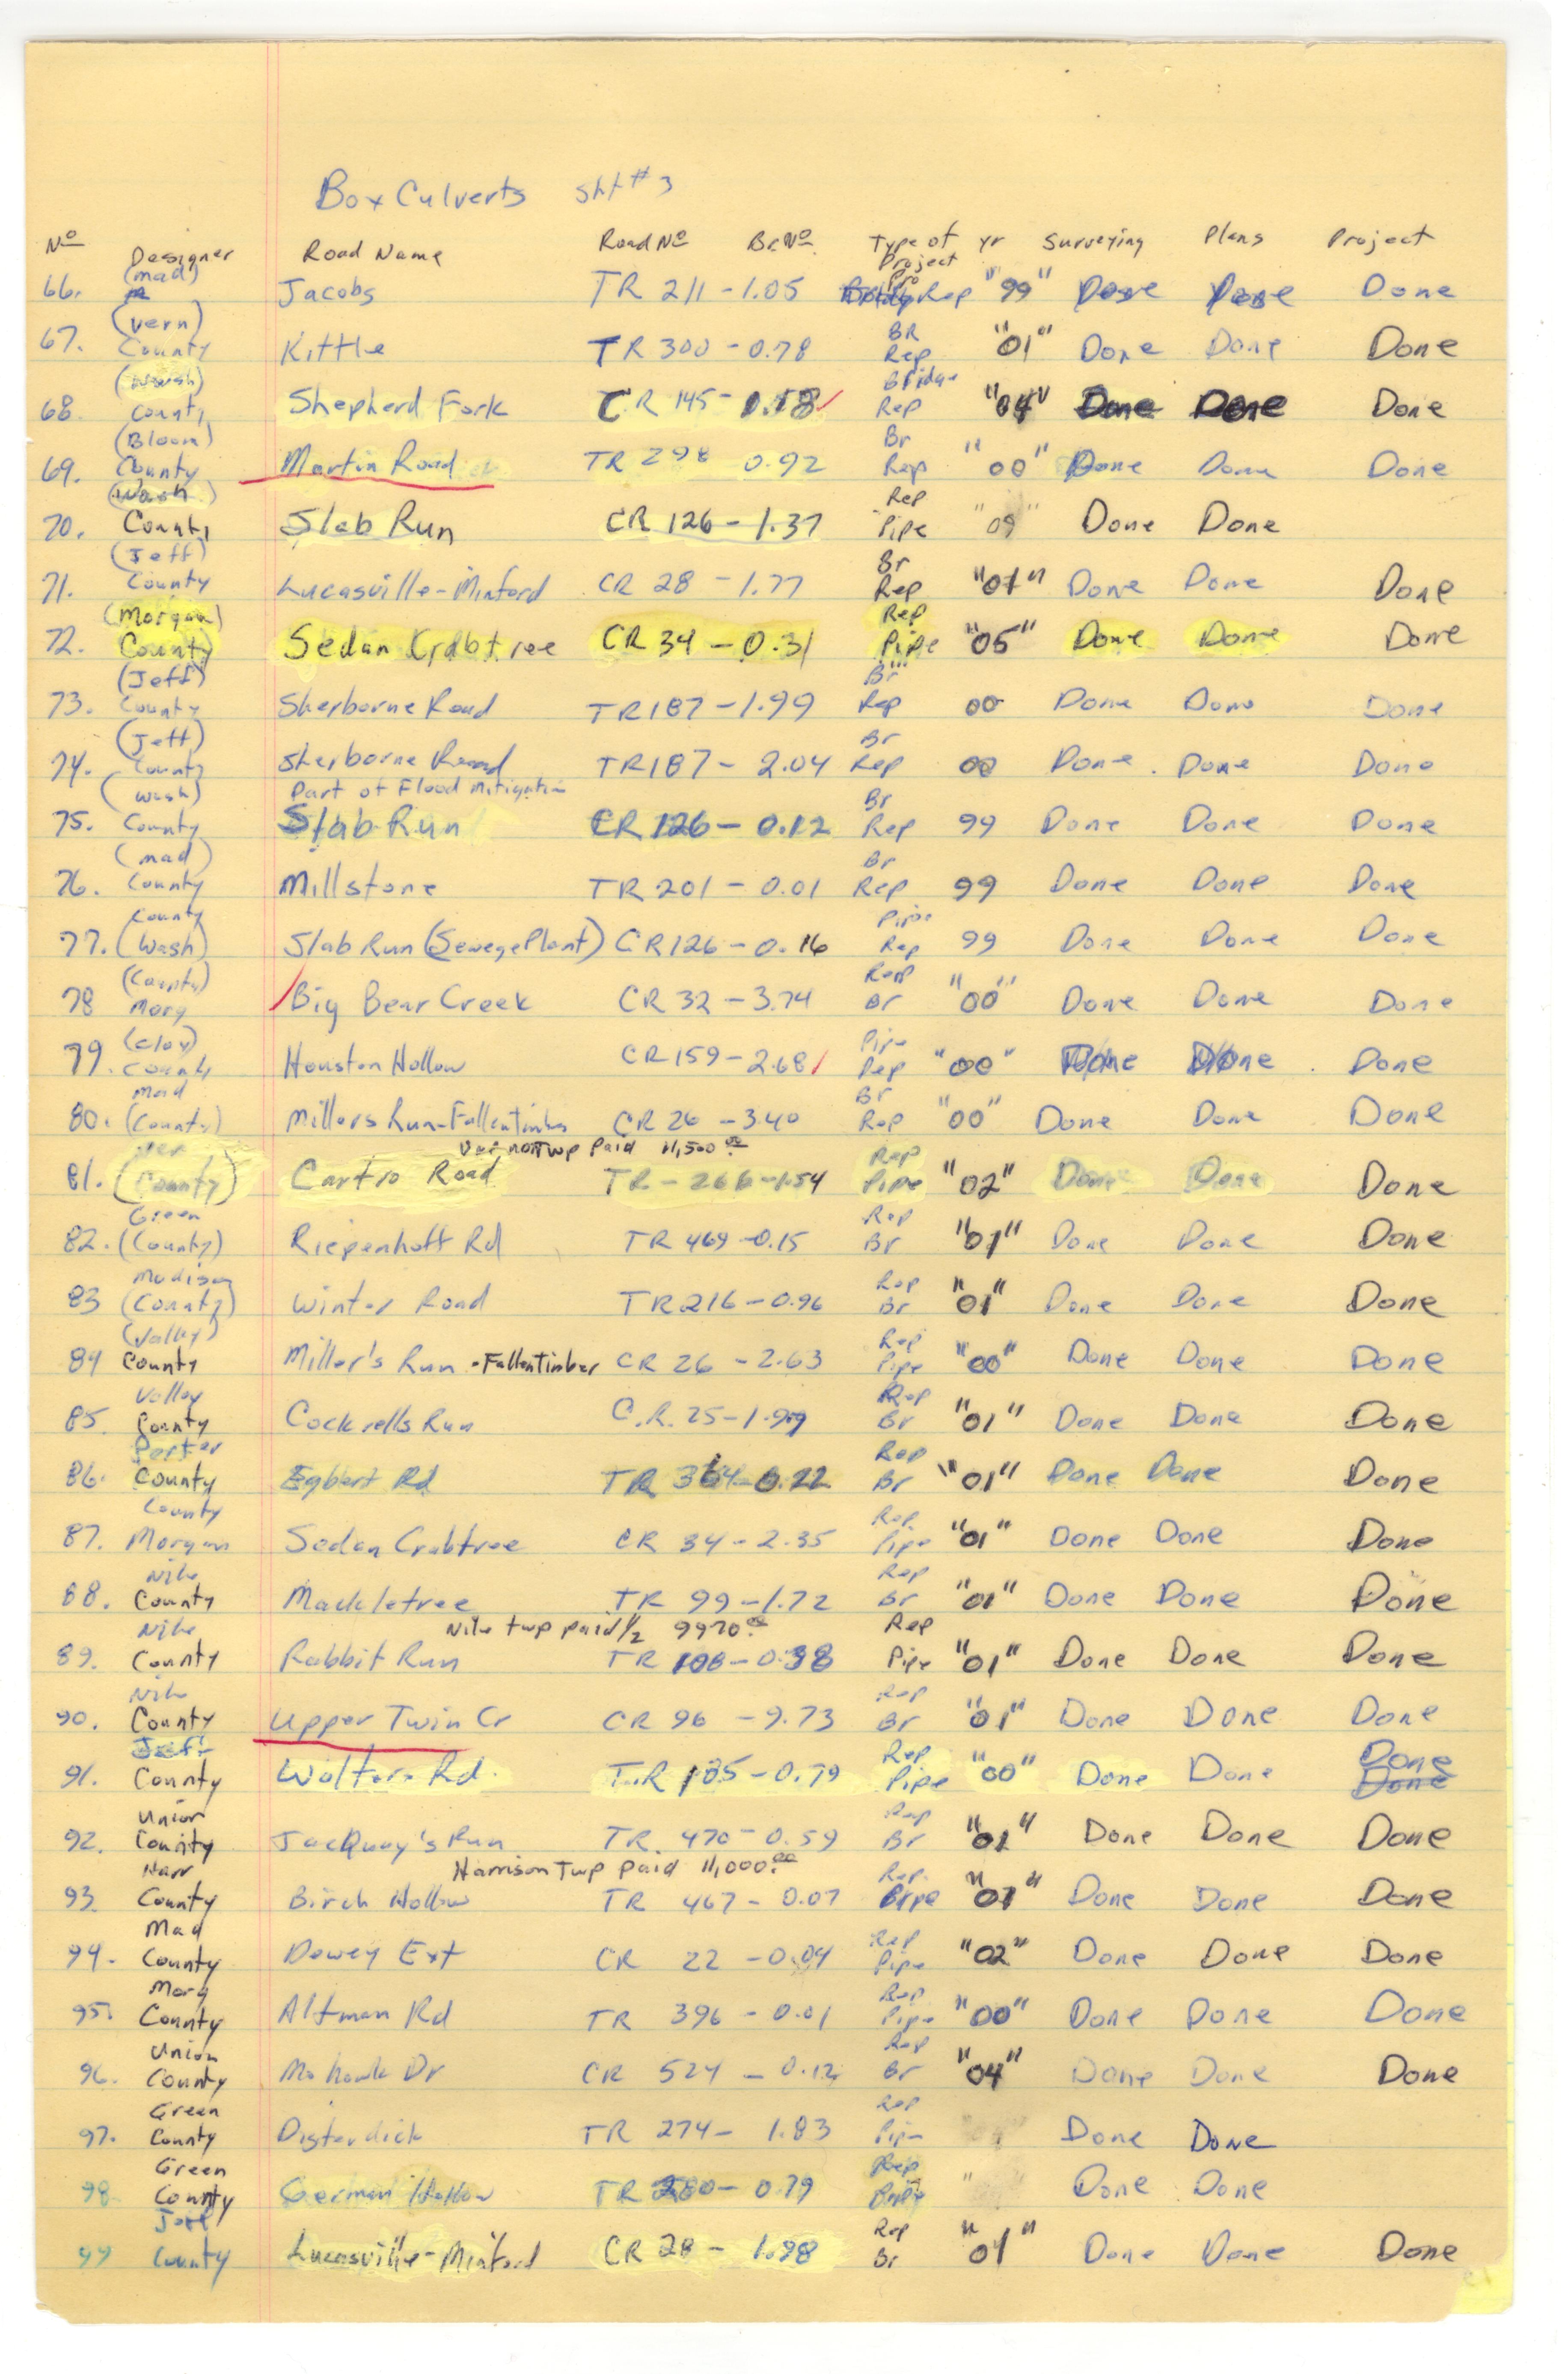 Box Culverts Sht # 3
Nº Designer Road Name Road Nº Br. Nº Type of Project yr Surveying Plans Project
66. (mad) Jacobs TR 211 - 1.05 Rep "99" Done Done Done
67. (Vern) County Kittle TR 300 - 0.78 BR Rep "01" Done Done Done
68. (Wash) County Shepherd Fork CR 145 - Bridge Rep "04" Done Done Done
69. (Bloom) County Martin Road TR 298 0.92 Br Rep "00" Done Done Done
70. (Wash) County Slab Run CR 126 - 1.37 Rep Pipe "09" Done Done
71. (Jeff) County Lucasville - Minford CR 28 - 1.77 Br Rep "01" Done Done Done
72. (Morgan) County Sedan Crabtree CR 34 - 0.31 Rep Pipe "05" Done Done Done
73. (Jeff) County Sherborne Road TR 187 - 1.99 Br Rep "00" Done Done Done
74. (Jeff) County Sherborne Road TR 187 - 2.04 Br Rep 00 Done Done Done
Part of Flood Mitigation
75. (Wash) County Slab Run CR 126 - 0.12 Br Rep 99 Done Done Done
76. (mad) County Millstone TR 201 - 0.01 Br Rep 99 Done Done Done
77. County (Wash) Slab Run (Sewege Plant) CR 126 - 0.16 Pipe Rep 99 Done Done Done
78 (County) Morg Big Bear Creek CR 32 - 3.74 Rep Br "00" Done Done Done
79. (Clay) County Houston Hollow CR 159 - 2.68 Pipe Rep "00" Done Done Done
80. Mad (County) Millers Run - Fallentimber CR 26 - 3.40 Br Rep "00" Done Done Done
Vernon Twp Paid 11,500.00
81. Ver (County) Cartro Road TR - 266 - 1.54 Rep Pipe "02" Done Done Done
82. Green (County) Riepenhoff Rd TR 469 - 0.15 Rep Br "01" Done Done Done
83 Madison (County) Winter Road TR 216 - 0.96 Rep Br "01" Done Done Done
84 (Valley) County Miller's Run - Fallentimber CR 26 - 2.63 Rep Pipe "00" Done Done Done
85. Valley County Cockrells Run C.R. 25 - 1.99 Rep Br "01" Done Done Done
86. Porter County Egbert Rd TR 364 - 0.22 Rep Br "01" Done Done Done
87. County Morgan Sedan Crabtree CR 34 - 2.35 Rep Pipe "01" Done Done Done
88. Nile County Mackletree TR 99 - 1.72 Rep Br "01" Done Done Done
Nile twp paid 1/2 9970.00
89. Nile County Rabbit Run TR 108 - 0.38 Rep Pipe "01" Done Done Done
90. Nile County Upper Twin Cr CR 96 - 9.73 Rep Br "01" Done Done Done
91. Jeff County Walters Rd. T.R 185 - 0.79 Rep Pipe "00" Done Done Done Done
92. Union County JacQuay's Run TR. 470 - 0.59 Rep Br "01" Done Done Done
Harrison Twp paid 11,000.00
93. Harr County Birch Hollow TR 467 - 0.07 Rep. Pipe "01" Done Done Done
94. Mad County Dewey Ext CR 22 - 0.04 Rep Pipe "02" Done Done Done
95. Morg County Altman Rd TR 396 - 0.01 Rep Pipe "00" Done Done Done
96. Union County Mohawk Dr CR 524 - 0.12 Rep Br "04" Done Done Done
97. Green County Disterdick TR 274 - 1.83 Rep Pipe Done Done
98. Green County German Hollow TR 280 - 0.79 Rep Done Done
99 Jeff County Lucasville - Minford CR 28 - 1.98 Rep Br "01" Done Done Done